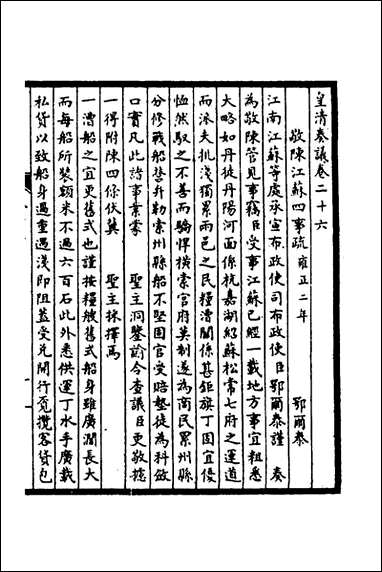 皇清奏議卷二十六
敬陳江蘇四事疏雍正二年 鄂爾泰
江南江蘇等處承宣布政使司布政使臣鄂爾泰謹奏
為敬陳管見事竊臣受事江蘇已經一載地方事宜粗悉
大略如丹徒丹陽河面係杭嘉湖紹蘇松常七府之運道
而派夫扒淺獨累兩邑之民糧漕關係甚鉅旗丁固宜優
恤然馭之不善而驕悍橫索官府莫制遂為商民累州縣
分修戰船咨弁勒索州縣船不堅固官受賠墊徒為科斂
口實凡此諸事業蒙 聖主洞鑒前令查議臣更敬據
一得附陳四條伏冀 聖主採擇焉
一漕船之宜更舊式也謹按糧艘舊式船身雖廣濶長大
而每船所裝額米不過六百石此外悉供運丁水手廣載
私貨以致船身過重遇淺即阻蓋受兌開行覓攬客貨包